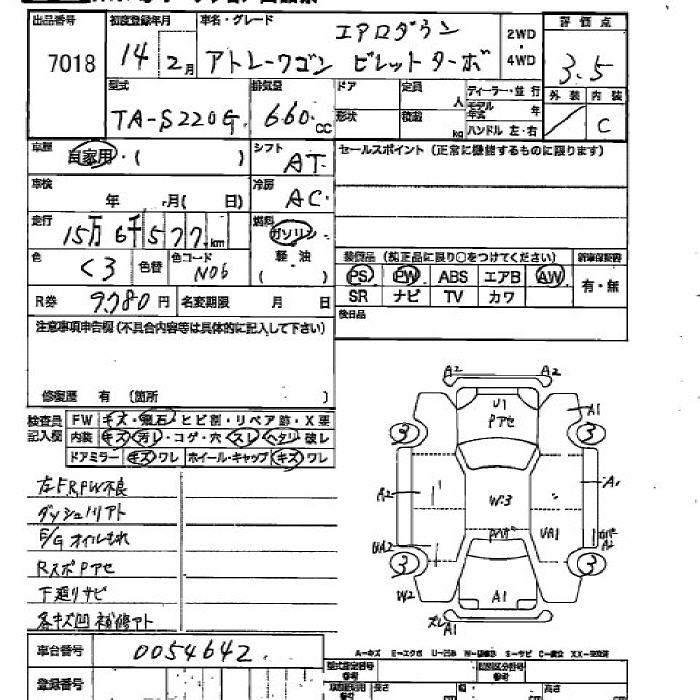 出品番号 7018
初度登録年月 14 2月
車名・グレード エアロダウン
アトレーワゴン ビレットターボ
2WD・4WD
評価点 3.5
外装 内装 C
型式 TA-S220G
排気量 660 CC
ドア 定員 人
形状 積載 kg
ディーラー・並行
モデル年式 年
ハンドル 左・右
車歴 自家用・( )
シフト AT
セールスポイント (正常に機能するものに限ります)
車検 年 月( 日)
冷房 AC
走行 15万6千577km
燃料 ガソリン
軽油
( )
色 クロ 色替 色コード N06
装備品 (純正品に限り○をつけてください) 新車保証書
PS PW ABS エアB AW 有・無
SR ナビ TV カワ
R券 9,780円 名変期限 月 日
後日品
注意事項申告欄(不具合内容等は具体的に記入して下さい)
修復歴 有 (箇所 )
検査員記入欄
FW キズ・飛石・ヒビ割・リペア跡・X要
内装 キズ・汚レ・コゲ・穴・スレ・ヘタリ・破レ
ドアミラー キズ・ワレ ホイール・キャップ キズ・ワレ
左FRPW不良
ダッシュノリアト
E/Gオイルもれ
RスポPアセ
下廻りサビ
各キズ凹補修アト
A2 A2
U1
Pアセ
A1
3 3
A2
W3
A1
UA1
A2
3 3
W2
A1
A1
車台番号 0054642
登録番号
A-キズ E-エクボ U-凹み W-補修跡 S-サビ C-腐食 XX-交換済
型式指定番号 類別区分番号
長さ 幅 高さ